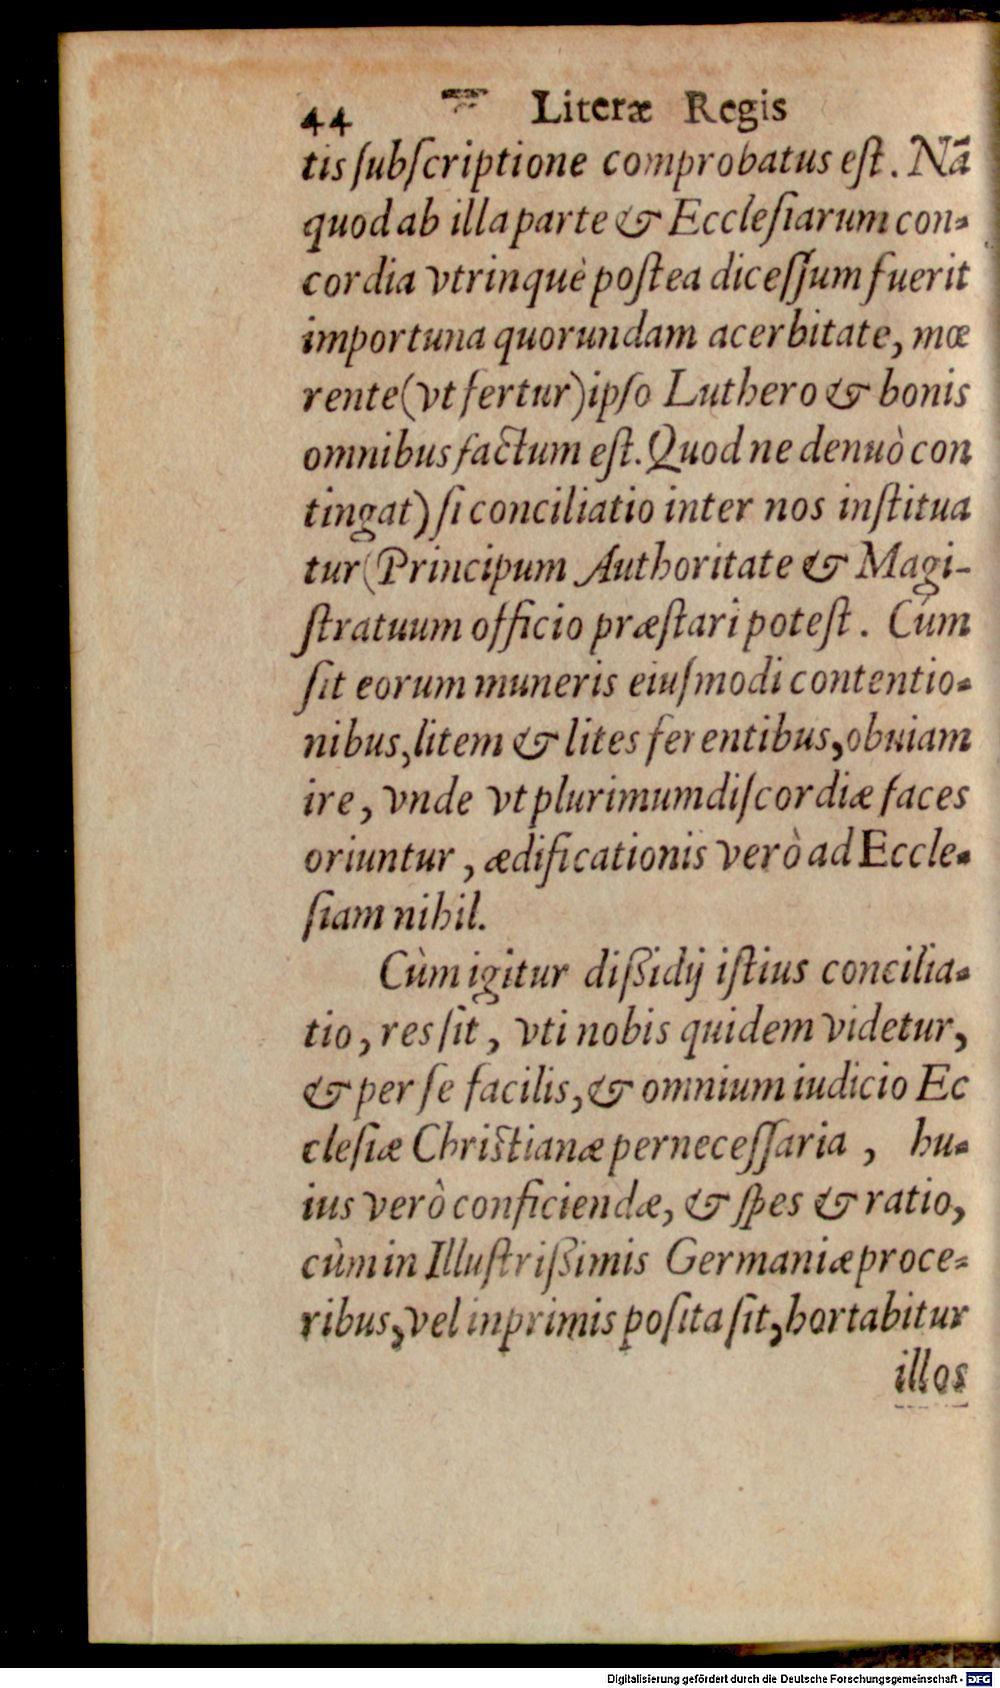 44 Literæ Regis
tis ſubſcriptione comprobatus eſt. Nā
quod ab illa parte & Eccleſiarum con-
cordia vtrinquè poſtea diceſſum fuerit
importuna quorundam acerbitate, mœ
rente (vt fertur) ipſo Luthero & bonis
omnibus factum eſt. Quod ne denuò con
tingat) ſi conciliatio inter nos inſtitua
tur (Principum Authoritate & Magi-
ſtratuum officio præſtari poteſt. Cùm
ſit eorum muneris eiuſmodi contentio-
nibus, litem & lites ferentibus, obuiam
ire, vnde vt plurimum diſcordiæ faces
oriuntur, ædificationis verò ad Eccle-
ſiam nihil.
Cùm igitur dißidij iſtius concilia-
tio, res ſit, vti nobis quidem videtur,
& per ſe facilis, & omnium iudicio Ec
cleſiæ Chriſtianæ perneceſſaria, hu-
ius verò conficiendæ, & ſpes & ratio,
cùm in Illuſtrißimis Germaniæ proce-
ribus, vel inprimis poſita ſit, hortabitur
illos
Digitalisierung gefördert durch die Deutsche Forschungsgemeinschaft - DFG